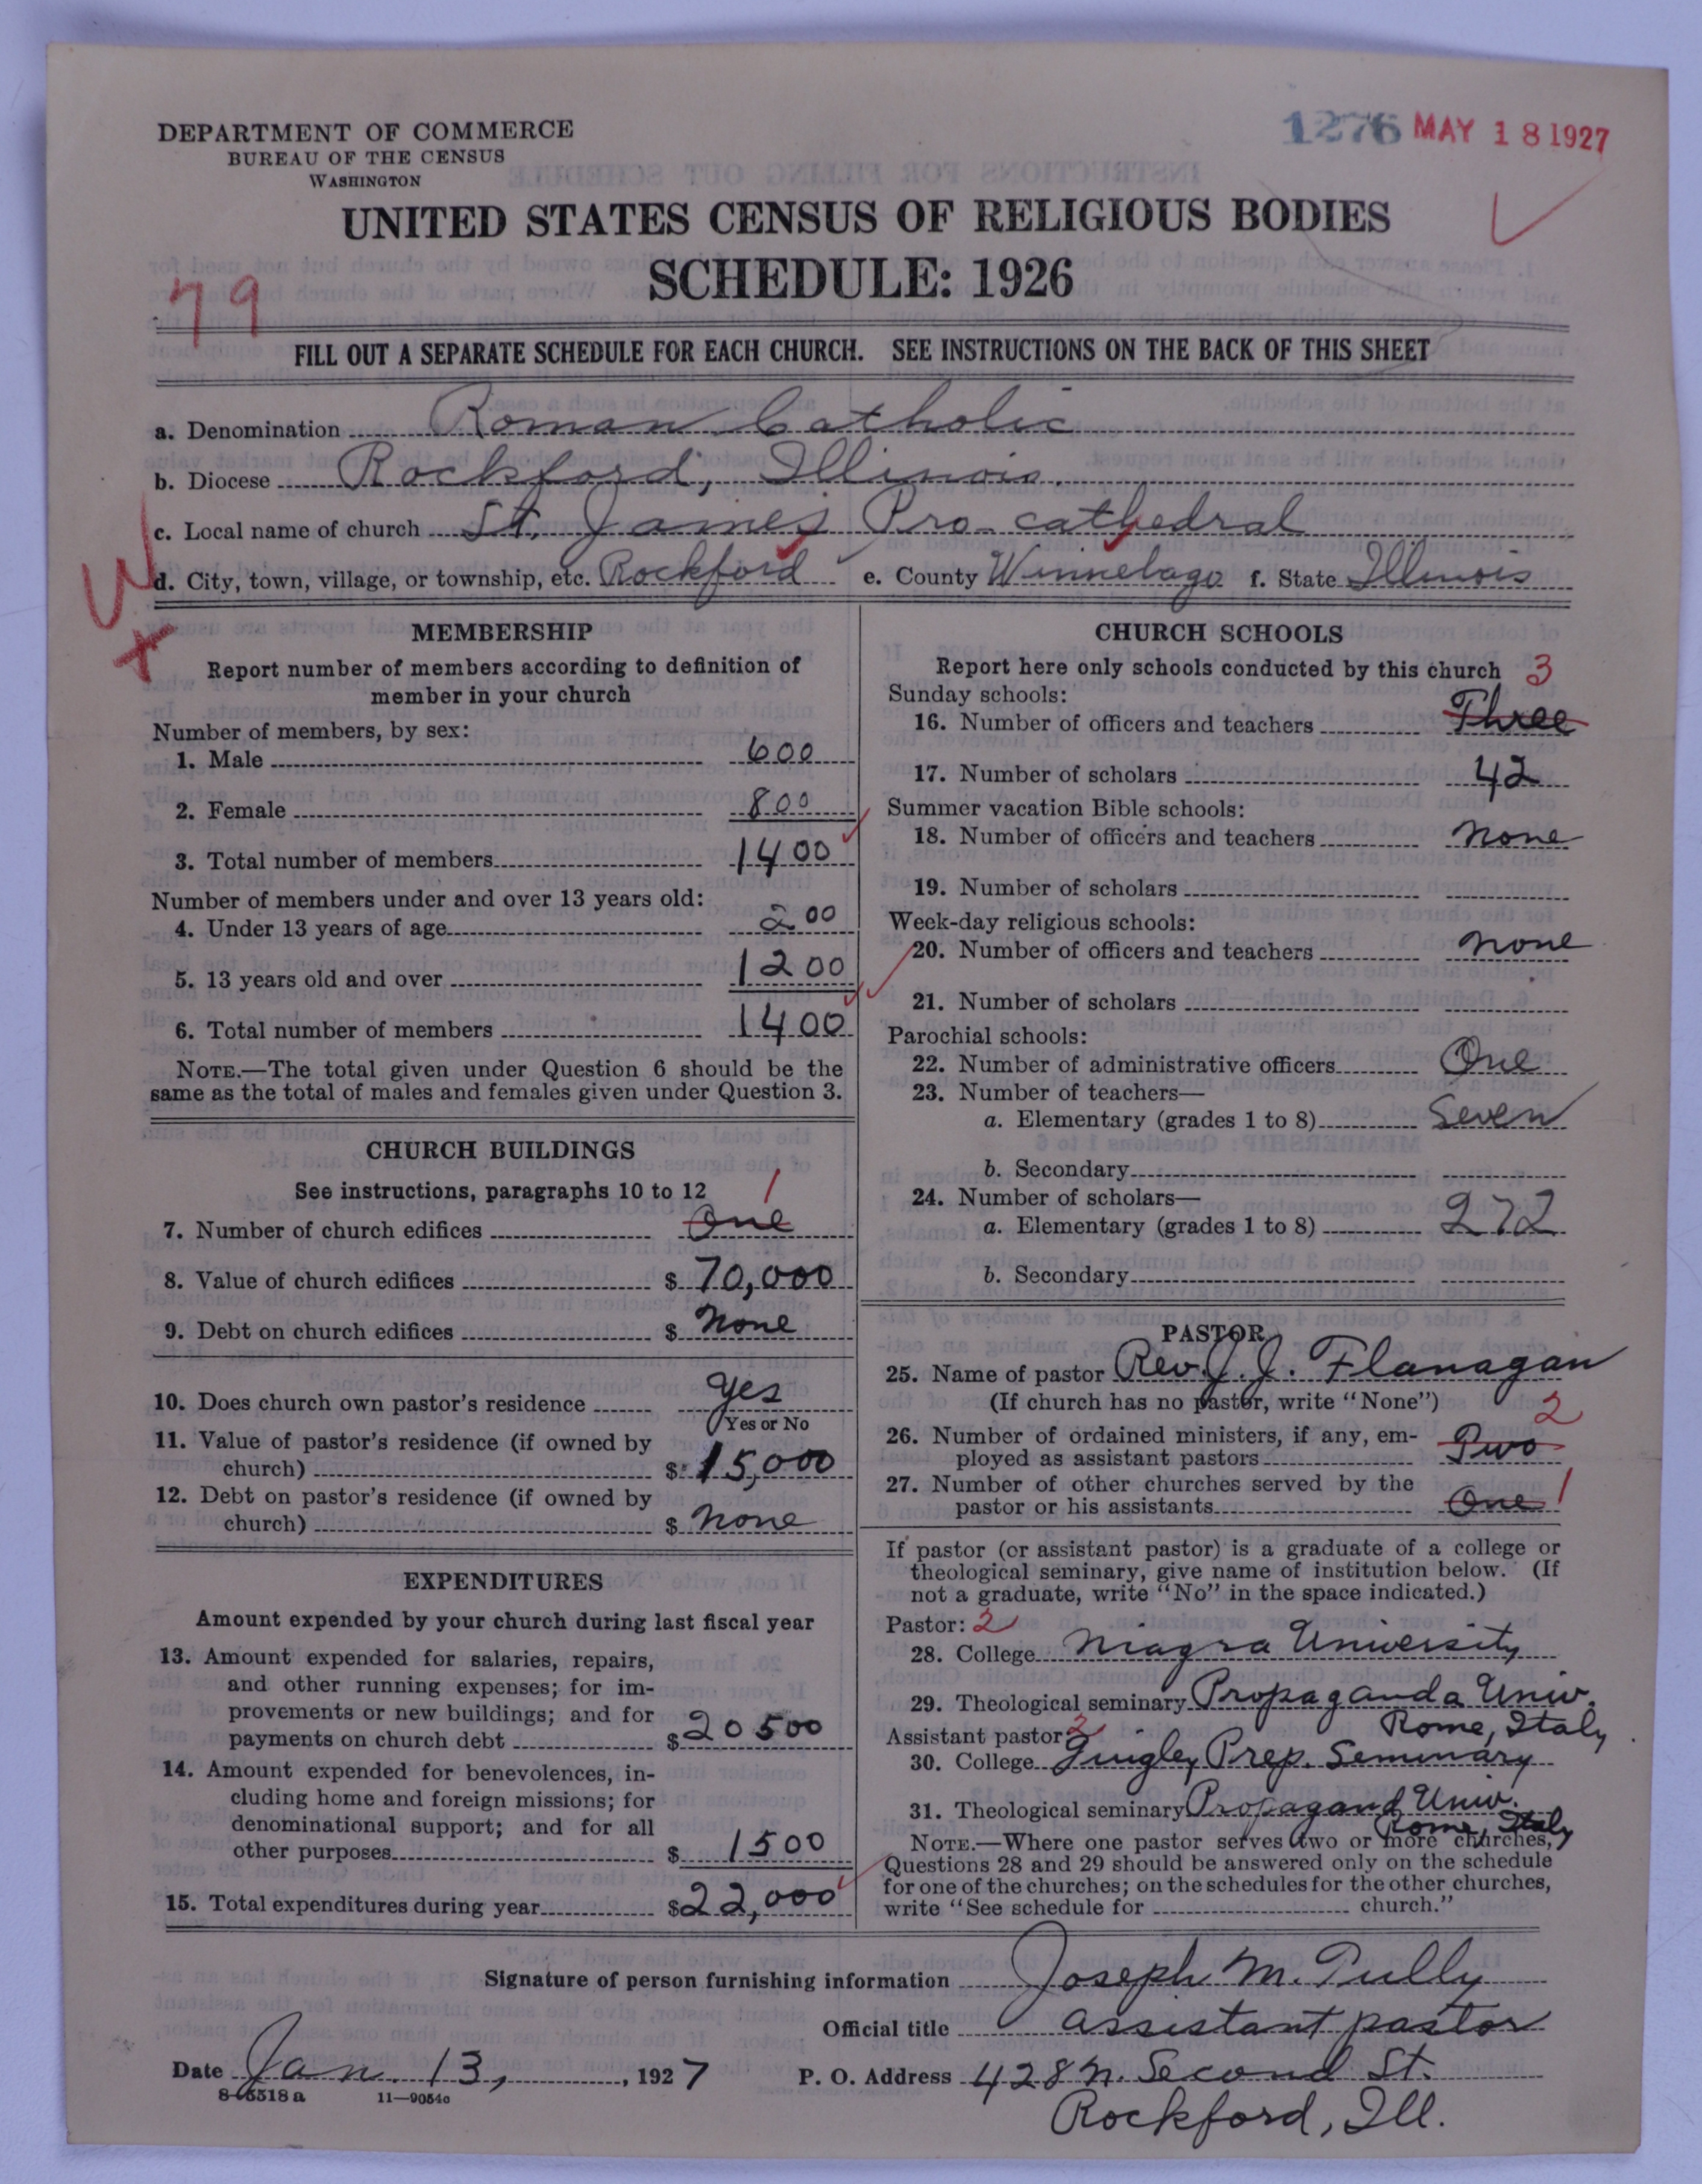 DEPARTMENT OF COMMERCE
BUREAU OF THE CENSUS
WASHINGTON
1276 MAY 18 1927
UNITED STATES CENSUS OF RELIGIOUS BODIES
SCHEDULE: 1926
79
FILL OUT A SEPARATE SCHEDULE FOR EACH CHURCH. SEE INSTRUCTIONS ON THE BACK OF THIS SHEET
a. Denomination Roman Catholic
b. Diocese Rockford, Illinois.
c. Local name of church St. James Pro-cathedral
d. City, town, village, or township, etc. Rockford e. County Winnebago f. State Illinois
MEMBERSHIP
Report number of members according to definition of
member in your church
Number of members, by sex:
1. Male 600
2. Female 800
3. Total number of members 1400
Number of members under and over 13 years old:
4. Under 13 years of age 200
5. 13 years old and over 1200
6. Total number of members 1400
NOTE.—The total given under Question 6 should be the
same as the total of males and females given under Question 3.
CHURCH BUILDINGS
See instructions, paragraphs 10 to 12 1
7. Number of church edifices One
8. Value of church edifices $ 70,000
9. Debt on church edifices $ None
10. Does church own pastor's residence Yes
Yes or No
11. Value of pastor's residence (if owned by
church) $ 15,000
12. Debt on pastor's residence (if owned by
church) $ None
EXPENDITURES
Amount expended by your church during last fiscal year
13. Amount expended for salaries, repairs,
and other running expenses; for im-
provements or new buildings; and for
payments on church debt $ 20500
14. Amount expended for benevolences, in-
cluding home and foreign missions; for
denominational support; and for all
other purposes $ 1500
15. Total expenditures during year $ 22,000
CHURCH SCHOOLS
Report here only schools conducted by this church 3
Sunday schools:
16. Number of officers and teachers Three
17. Number of scholars 42
Summer vacation Bible schools:
18. Number of officers and teachers None
19. Number of scholars
Week-day religious schools:
20. Number of officers and teachers None
21. Number of scholars
Parochial schools:
22. Number of administrative officers One
23. Number of teachers—
a. Elementary (grades 1 to 8) Seven
b. Secondary
24. Number of scholars—
a. Elementary (grades 1 to 8) 272
b. Secondary
PASTOR
25. Name of pastor Rev. J. J. Flanagan
(If church has no pastor, write "None") 2
26. Number of ordained ministers, if any, em-
ployed as assistant pastors Two
27. Number of other churches served by the
pastor or his assistants One 1
If pastor (or assistant pastor) is a graduate of a college or
theological seminary, give name of institution below. (If
not a graduate, write "No" in the space indicated.)
Pastor: 2
28. College Niagra University
29. Theological seminary Propaganda Univ.
Rome, Italy
Assistant pastor: 2
30. College Quigley Prep. Seminary
31. Theological seminary Propagand Univ.
Rome, Italy
NOTE.—Where one pastor serves two or more churches,
Questions 28 and 29 should be answered only on the schedule
for one of the churches; on the schedules for the other churches,
write "See schedule for church."
Signature of person furnishing information Joseph M. Tully
Official title assistant pastor
Date Jan. 13, 1927 P. O. Address 428 N. Second St.
Rockford, Ill.
8-5518 a 11—9054c